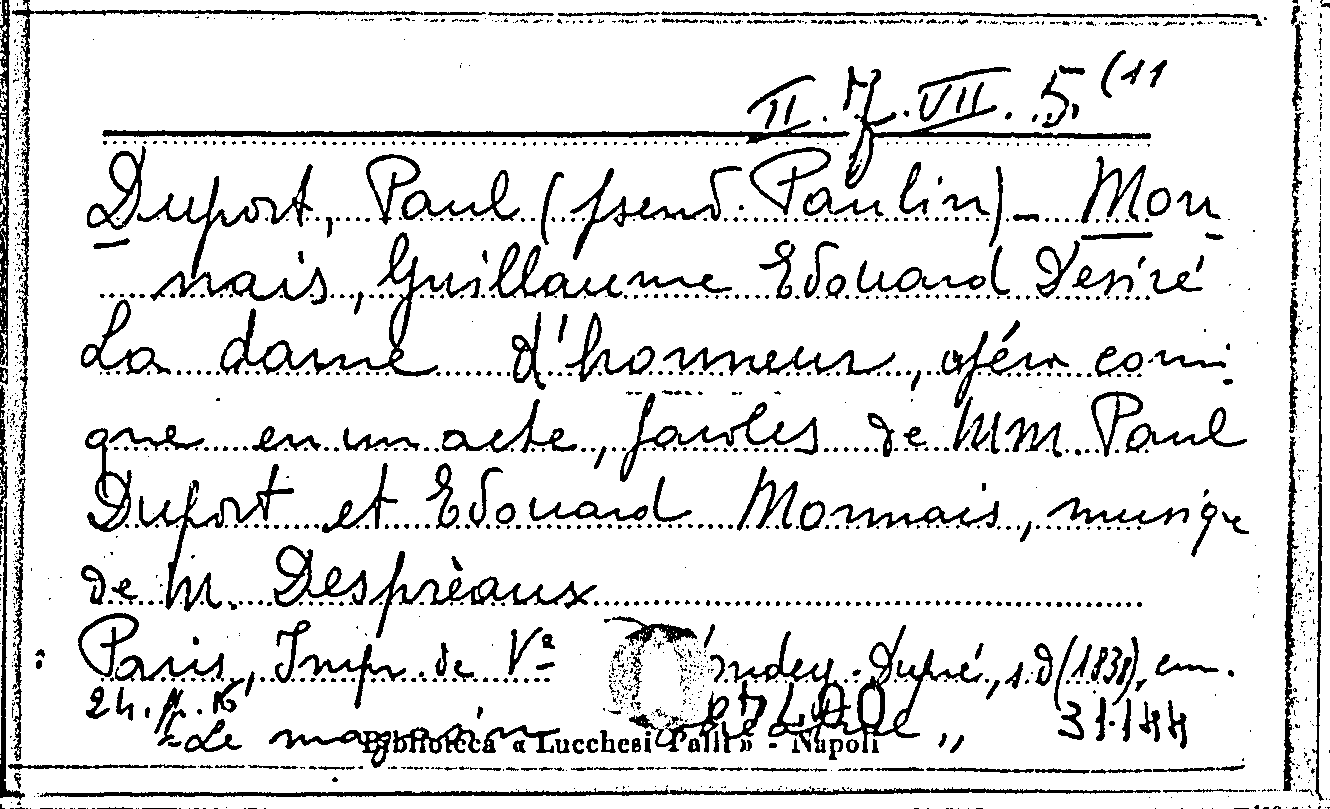 II. 7. VII. 5. (11
Duport, Paul (pseud. Paulin) - Mon
nais, Guillaume Edouard Desiré
La dame d'honneur, opéra comi
que en un acte, paroles de MM. Paul
Duport et Edouard Monnais, musique
de M. Desprèaux
Paris, Impr. de Vª ondey-Dupré, s.d (1838), cm.
24. p. 16
"Le magasin théâtrale"
31144
Biblioteca « Lucchesi Palli » - Napoli